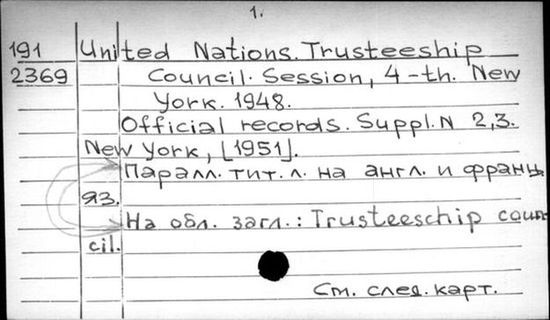 1.
191 United Nations. Trusteeship
2369 Council. Session, 4-th. New
York. 1948.
Official records. Suppl. N 2,3.
New York, [1951].
Паралл. тит. л. на англ. и франц.
яз.
На обл. загл.: Trusteeschip coun-
cil.
См. след. карт.